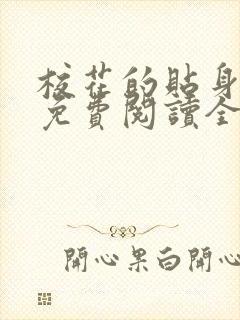 校花的貼身
免費閱讀全
開心果白開心